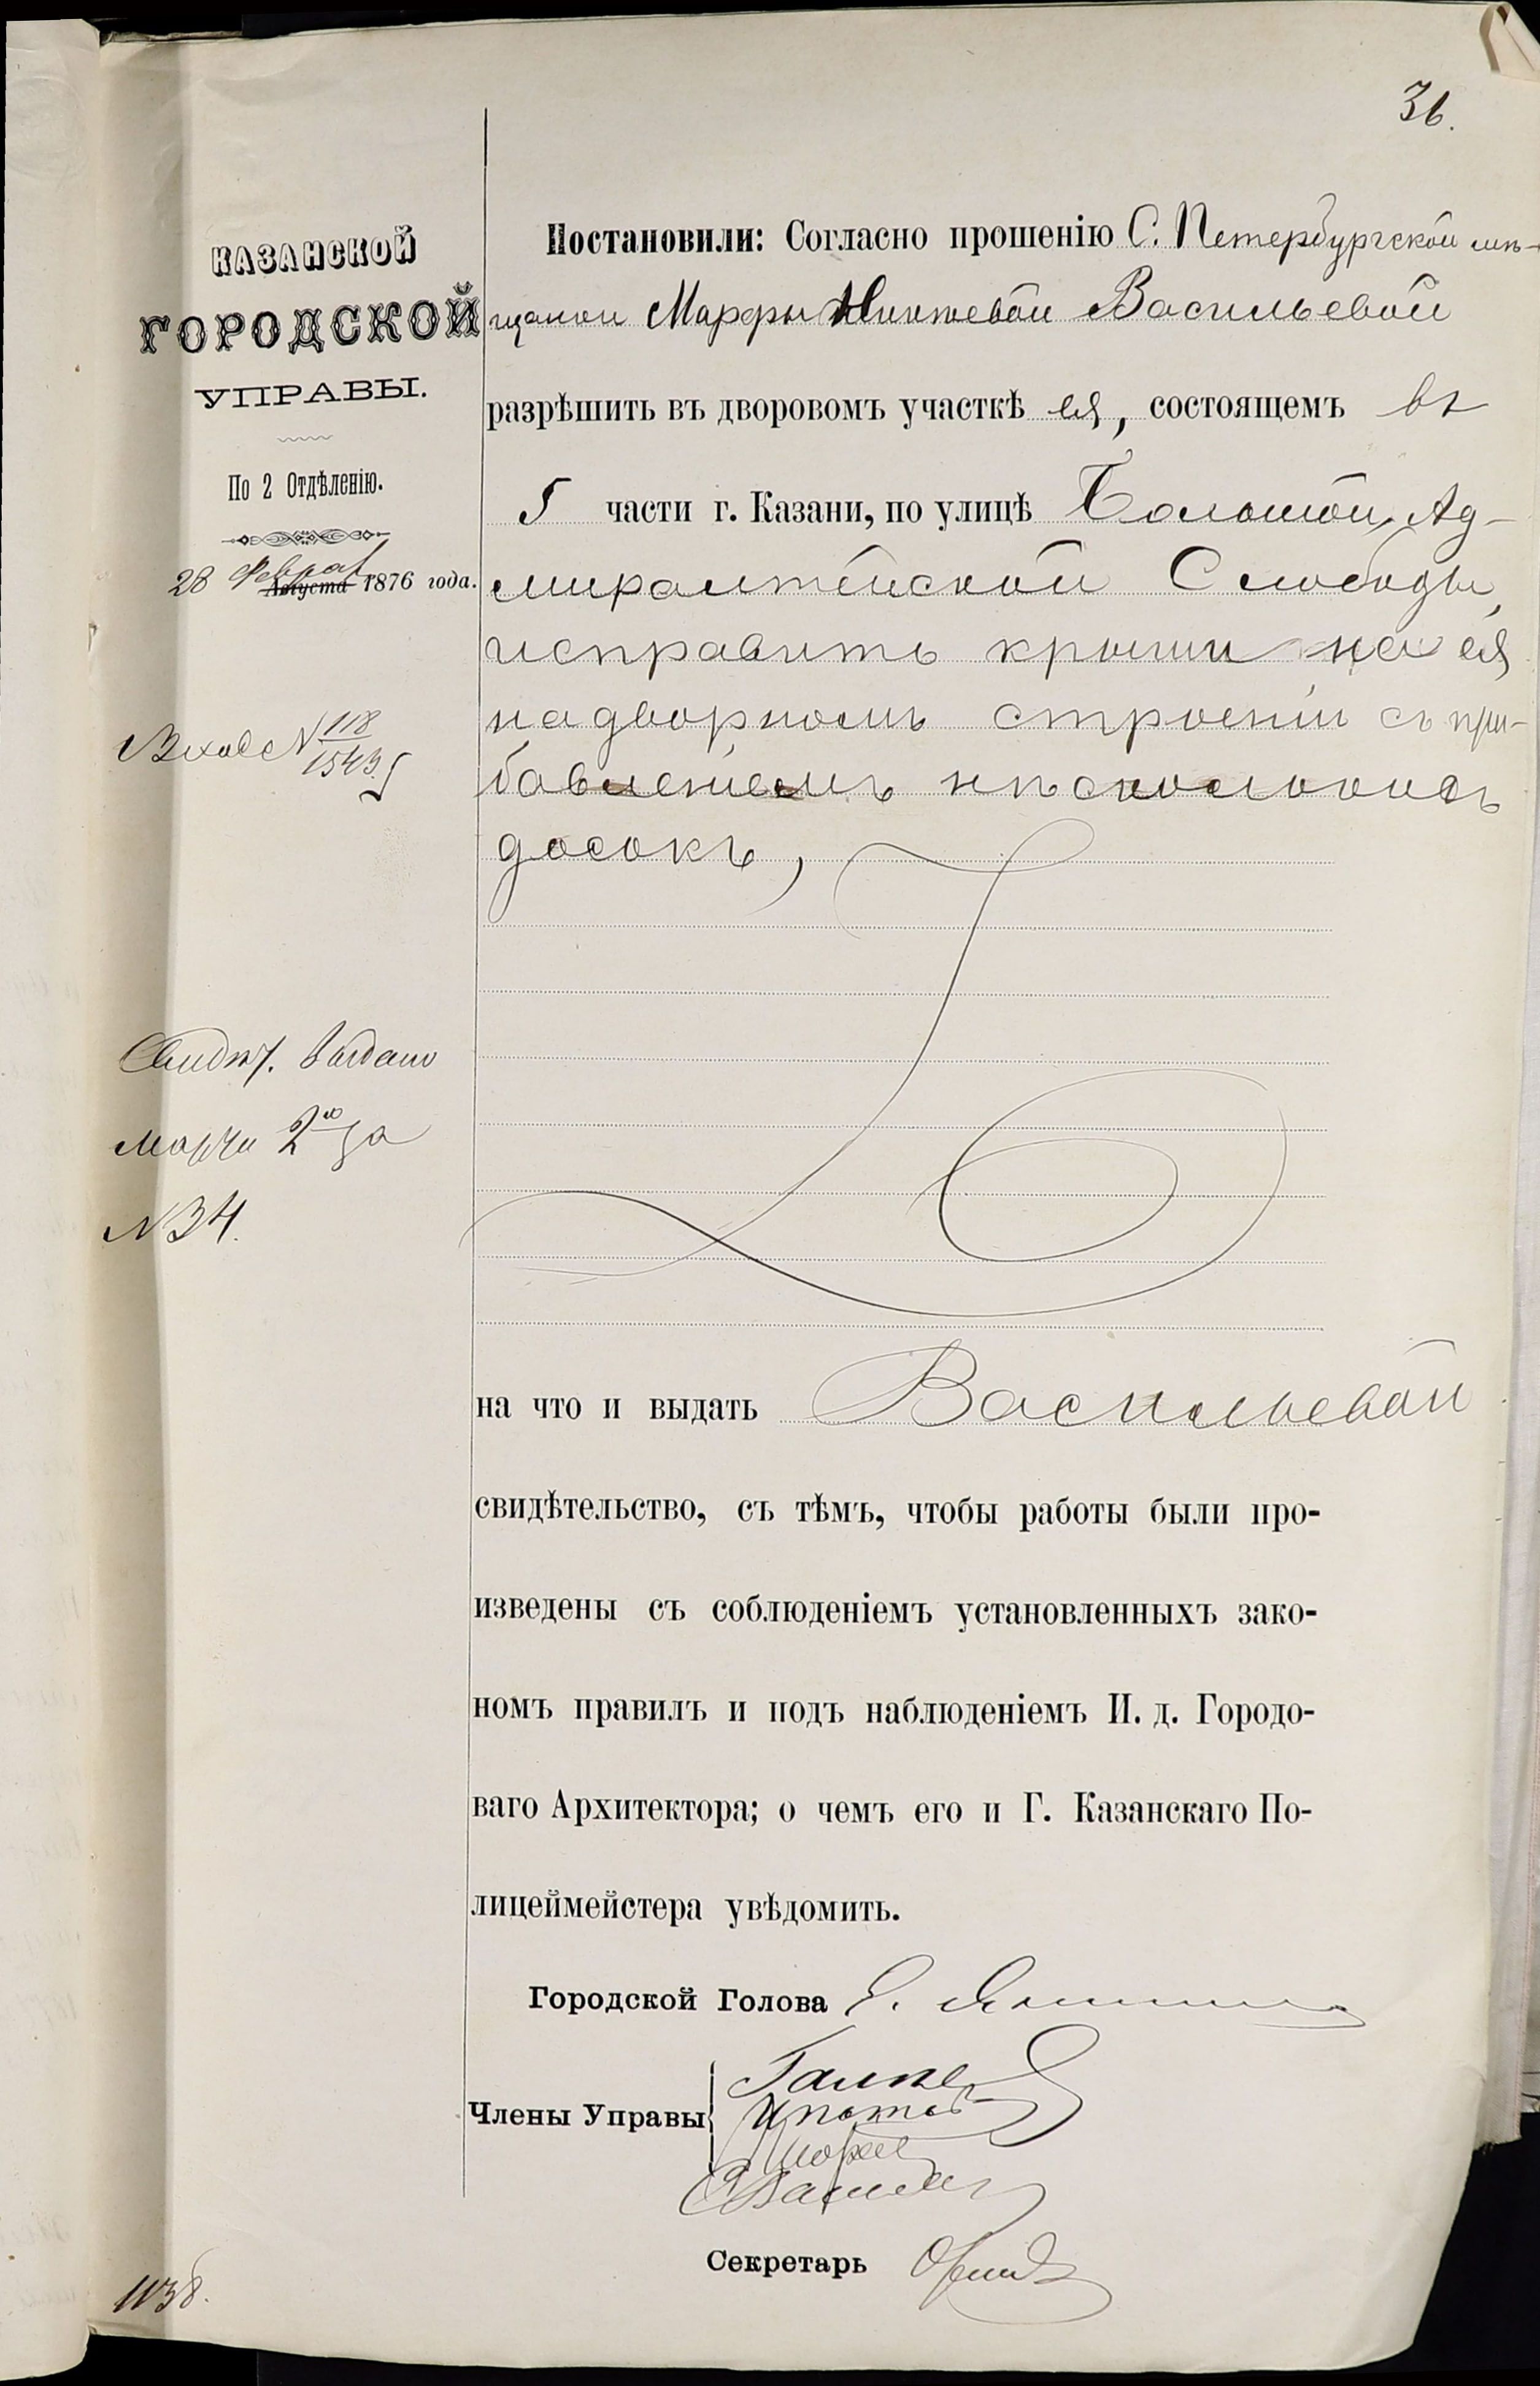 36.
КАЗАНСКОЙ
ГОРОДСКОЙ
УПРАВЫ.
По 2 Отдѣленію.
28 Феврал
Августа 1876 года.
Входе N 118
1543.
Свидѣт. выдано
марта 2го за
N 34.
1138.
Постановили: Согласно прошенію С. Петербургской мѣ-
щанки Марфы Васильевой
разрѣшить въ дворовомъ участкѣ ея, состоящемъ въ
5 части г. Казани, по улицѣ Большой, Ад-
миралтейской Слободы,
исправить крыши на ея
надворномъ строеніи съ при-
бавленіемъ нѣсколькихъ
досокъ,
на что и выдать Васильевой
свидѣтельство, съ тѣмъ, чтобы работы были про-
изведены съ соблюденіемъ установленныхъ зако-
номъ правилъ и подъ наблюденіемъ И. д. Городо-
ваго Архитектора; о чемъ его и Г. Казанскаго По-
лицеймейстера увѣдомить.
Городской Голова Е. Янишъ
Члены Управы
Секретарь